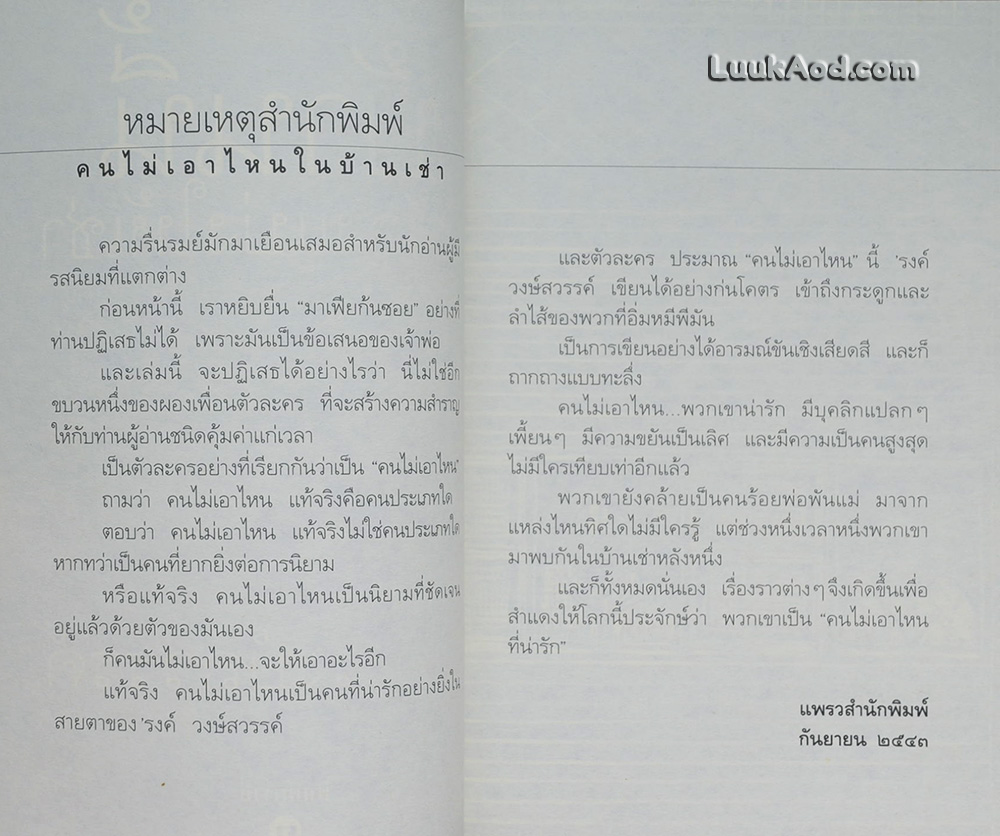 LuukAod.com
หมายเหตุสำนักพิมพ์
คนไม่เอาไหนในบ้านเช่า
ความรื่นรมย์มักมาเยือนเสมอสำหรับนักอ่านผู้มี
รสนิยมที่แตกต่าง
ก่อนหน้านี้ เราหยิบยื่น “มาเฟียก้นซอย” อย่างที่
ท่านปฏิเสธไม่ได้ เพราะมันเป็นข้อเสนอของเจ้าพ่อ
และเล่มนี้ จะปฏิเสธได้อย่างไรว่า นี่ไม่ใช่อีก
ขบวนหนึ่งของผองเพื่อนตัวละคร ที่จะสร้างความสำราญ
ให้กับท่านผู้อ่านชนิดคุ้มค่าแก่เวลา
เป็นตัวละครอย่างที่เรียกกันว่าเป็น “คนไม่เอาไหน”
ถามว่า คนไม่เอาไหน แท้จริงคือคนประเภทใด
ตอบว่า คนไม่เอาไหน แท้จริงไม่ใช่คนประเภทใด
หากทว่าเป็นคนที่ยากยิ่งต่อการนิยาม
หรือแท้จริง คนไม่เอาไหนเป็นนิยามที่ชัดเจน
อยู่แล้วด้วยตัวของมันเอง
ก็คนมันไม่เอาไหน...จะให้เอาอะไรอีก
แท้จริง คนไม่เอาไหนเป็นคนที่น่ารักอย่างยิ่งใน
สายตาของ ’รงค์ วงษ์สวรรค์
และตัวละคร ประมาณ “คนไม่เอาไหน” นี้ ’รงค์
วงษ์สวรรค์ เขียนได้อย่างก่นโคตร เข้าถึงกระดูกและ
ลำไส้ของพวกที่อิ่มหมีพีมัน
เป็นการเขียนอย่างได้อารมณ์ขันเชิงเสียดสี และก็
ถากถางแบบทะลึ่ง
คนไม่เอาไหน...พวกเขาน่ารัก มีบุคลิกแปลกๆ
เพี้ยนๆ มีความขยันเป็นเลิศ และมีความเป็นคนสูงสุด
ไม่มีใครเทียบเท่าอีกแล้ว
พวกเขายังคล้ายเป็นคนร้อยพ่อพันแม่ มาจาก
แหล่งไหนทิศใดไม่มีใครรู้ แต่ช่วงหนึ่งเวลาหนึ่งพวกเขา
มาพบกันในบ้านเช่าหลังหนึ่ง
และก็ทั้งหมดนั่นเอง เรื่องราวต่างๆจึงเกิดขึ้นเพื่อ
สำแดงให้โลกนี้ประจักษ์ว่า พวกเขาเป็น “คนไม่เอาไหน
ที่น่ารัก”
แพรวสำนักพิมพ์
กันยายน ๒๕๔๓